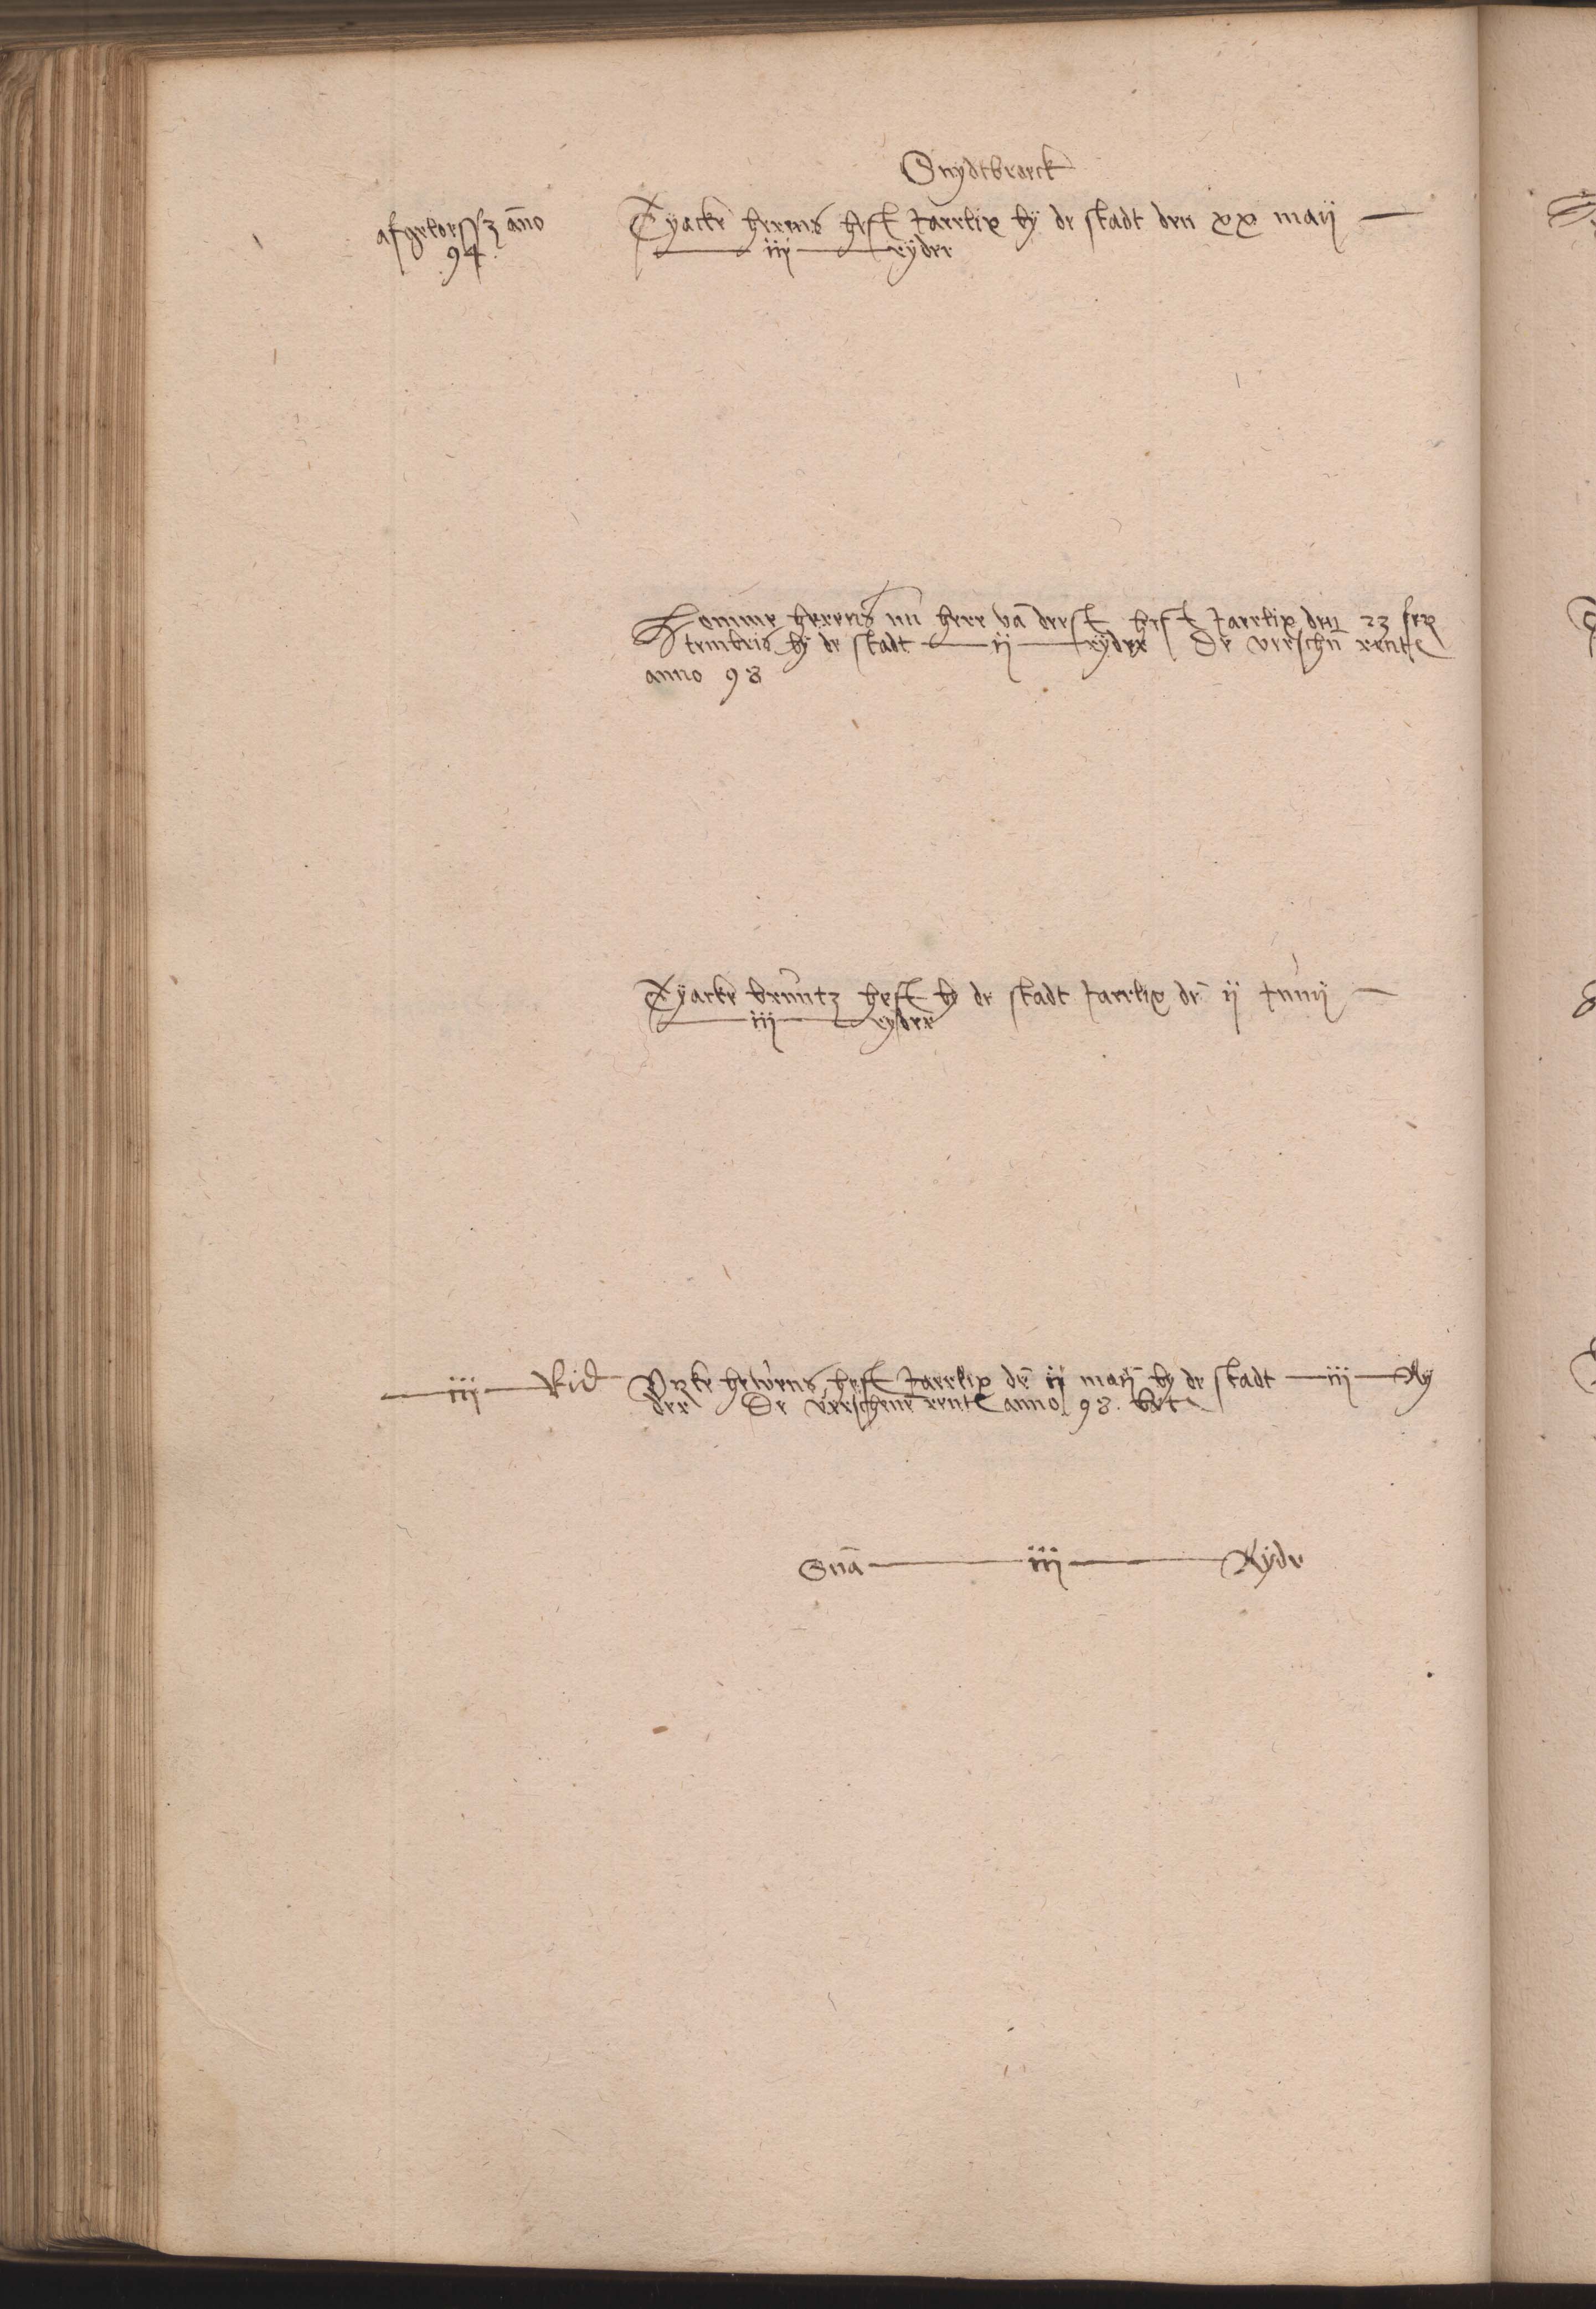 Suydtbroeck
afgeloesst anno
94.
Tyacke herens heft Jaerlix by de stadt den xx maij —
— iij — ryder
Homme herens nu here va deest heft Jaerlix den 23 sep
tembris by de stadt — ij — ryder De verschen rente
anno 98
Tyacke bruntz heft by de stadt Jaerlix de ij Junij —
— iij — ryder
— iij — Rid
heft Jaerlix de ij maij by de stadt — iij — Ry
der De verschene rente anno 98.
Sua — iij — Ryde